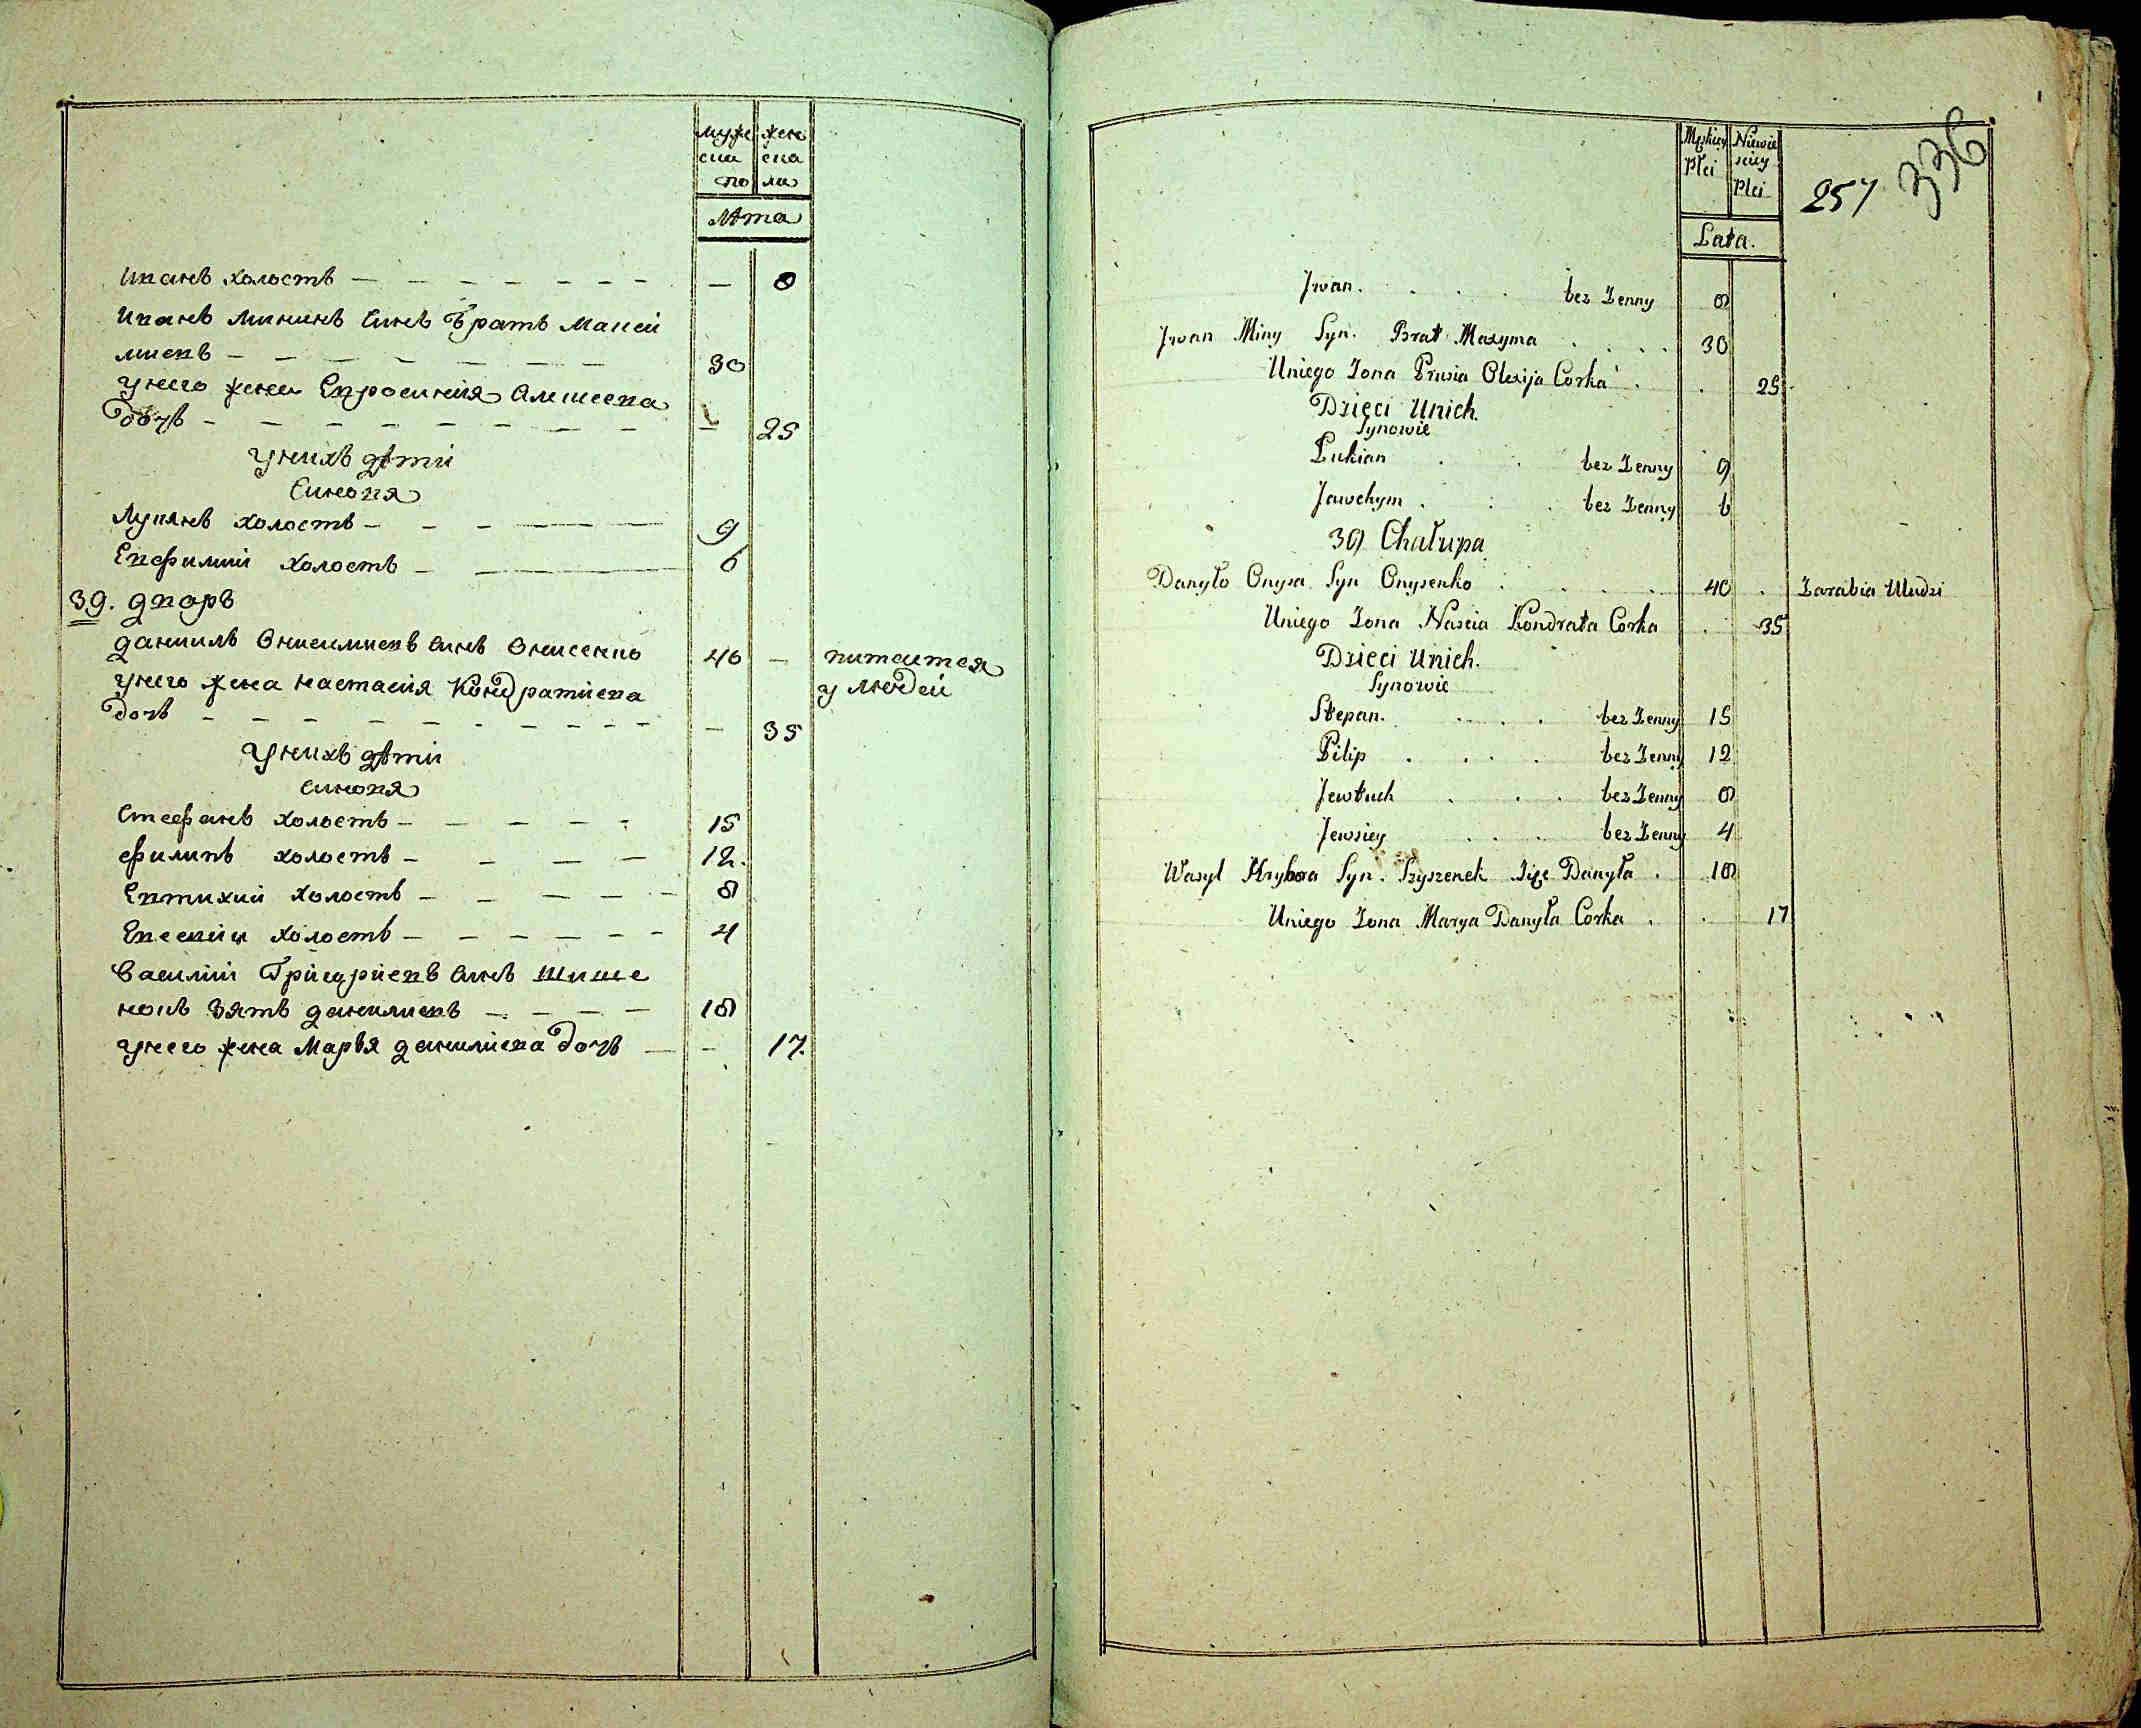 муже жен
ска ска
го ли
лѣта
Иванъ холостъ — — — — — — — 8
Иванъ Мининъ синъ Братъ Макси
миевъ — — — — — — — 30
унего жена Евросиния Алексеева
Дочъ — — — — — — — — — 25
унихъ дѣти
Синовя
Лукянъ холостъ — — — — 9
Евфимий холостъ — — 6
39. дворъ
данилъ Онисимиевъ синъ Онисенко 40 — питается
унего жена настасия Кондратиева у людей
Дочъ — — — — — — — — — 35
Унихъ дѣти
синовя
Стефанъ холостъ — — — — 15
филипъ холостъ — — — — 12.
Евтихий холостъ — — — — — 8
Евсевий холостъ — — — — — — 4
Василий Григориевъ синъ Шише
нокъ зять данилиевъ — — — — 18
унего жена Марья данилиева Дочъ — — 17.
Męskiey Niewie
Płci sciey
Płci
257 336
Lata.
Jwan. . . . bez Żenny 8
Jwan Miny Syn. Brat Maxyma . . . . 30
Uniego Żona Prusia Olexija Corka . . 25
Dzieci Unich.
Synowie
Łukian . . bez Żenny 9
Jawchym . . . bez Żenny 6
39 Chałupa
Danyło Onysa Syn Onysenko . . . . 40 . Zarabia Uludzi
Uniego Żona Nascia Kondrata Corka . 35
Dzieci Unich.
Synowie
Stepan. . . . . bez Żenny 15
Pilip . . . . bez Żenny 12
Jewtuch . . . bez Żenny 8
Jewsiey . . . bez Żenny 4
Wasyl Hryhora Syn. Szyszenek Zięc Danyła . 18
Uniego Żona Marya Danyła Corka . . 17